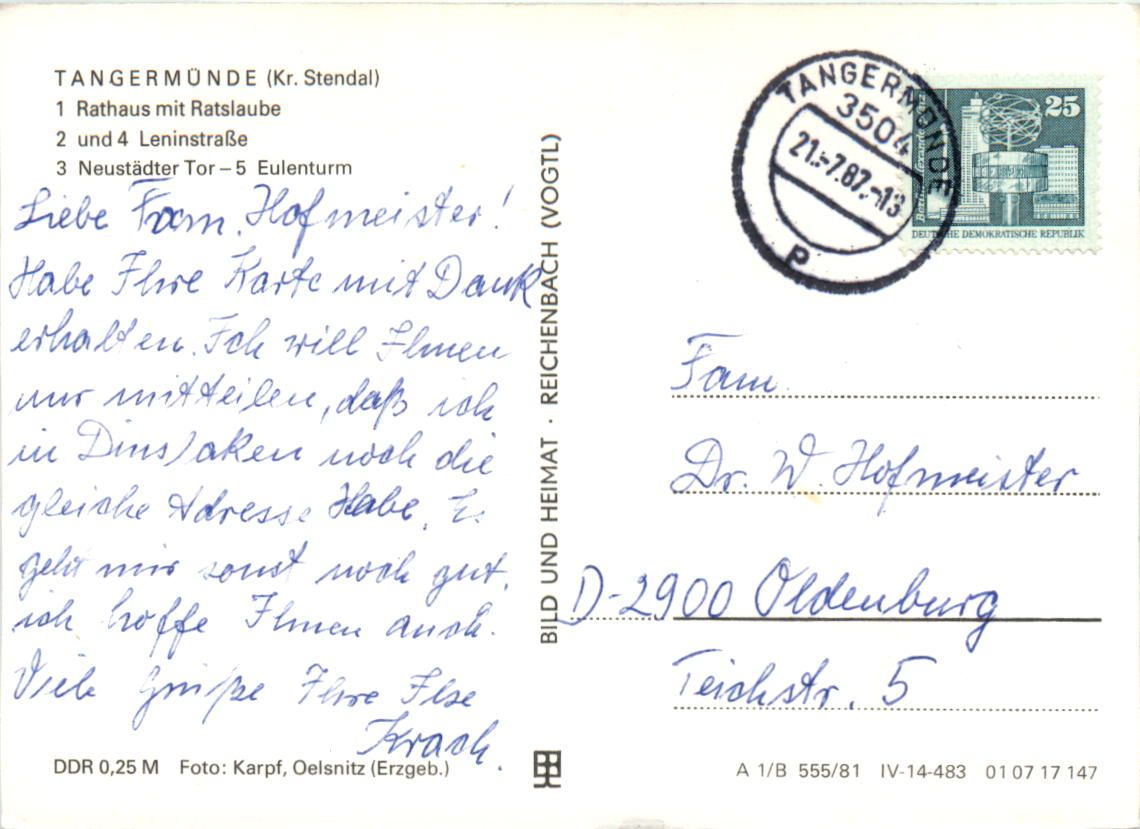 TANGERMÜNDE (Kr. Stendal)
1 Rathaus mit Ratslaube
2 und 4 Leninstraße
3 Neustädter Tor – 5 Eulenturm
Liebe Fam. Hofmeister!
Habe Ihre Karte mit Dank
erhalten. Ich will Ihnen
nur mitteilen, daß ich
in Dinslaken noch die
gleiche Adresse Habe. Es
geht mir sonst noch gut,
ich hoffe Ihnen auch.
Viele Grüße Ihre Ilse
Krach.
DDR 0,25 M Foto: Karpf, Oelsnitz (Erzgeb.)
BILD UND HEIMAT · REICHENBACH (VOGTL)
TANGERMÜNDE
3504
21.-7.87.-13
P
25
Berlin, Alexanderplatz
DEUTSCHE DEMOKRATISCHE REPUBLIK
Fam.
Dr. W. Hofmeister
D-2900 Oldenburg
Teichstr. 5
A 1/B 555/81 IV-14-483 01 07 17 147